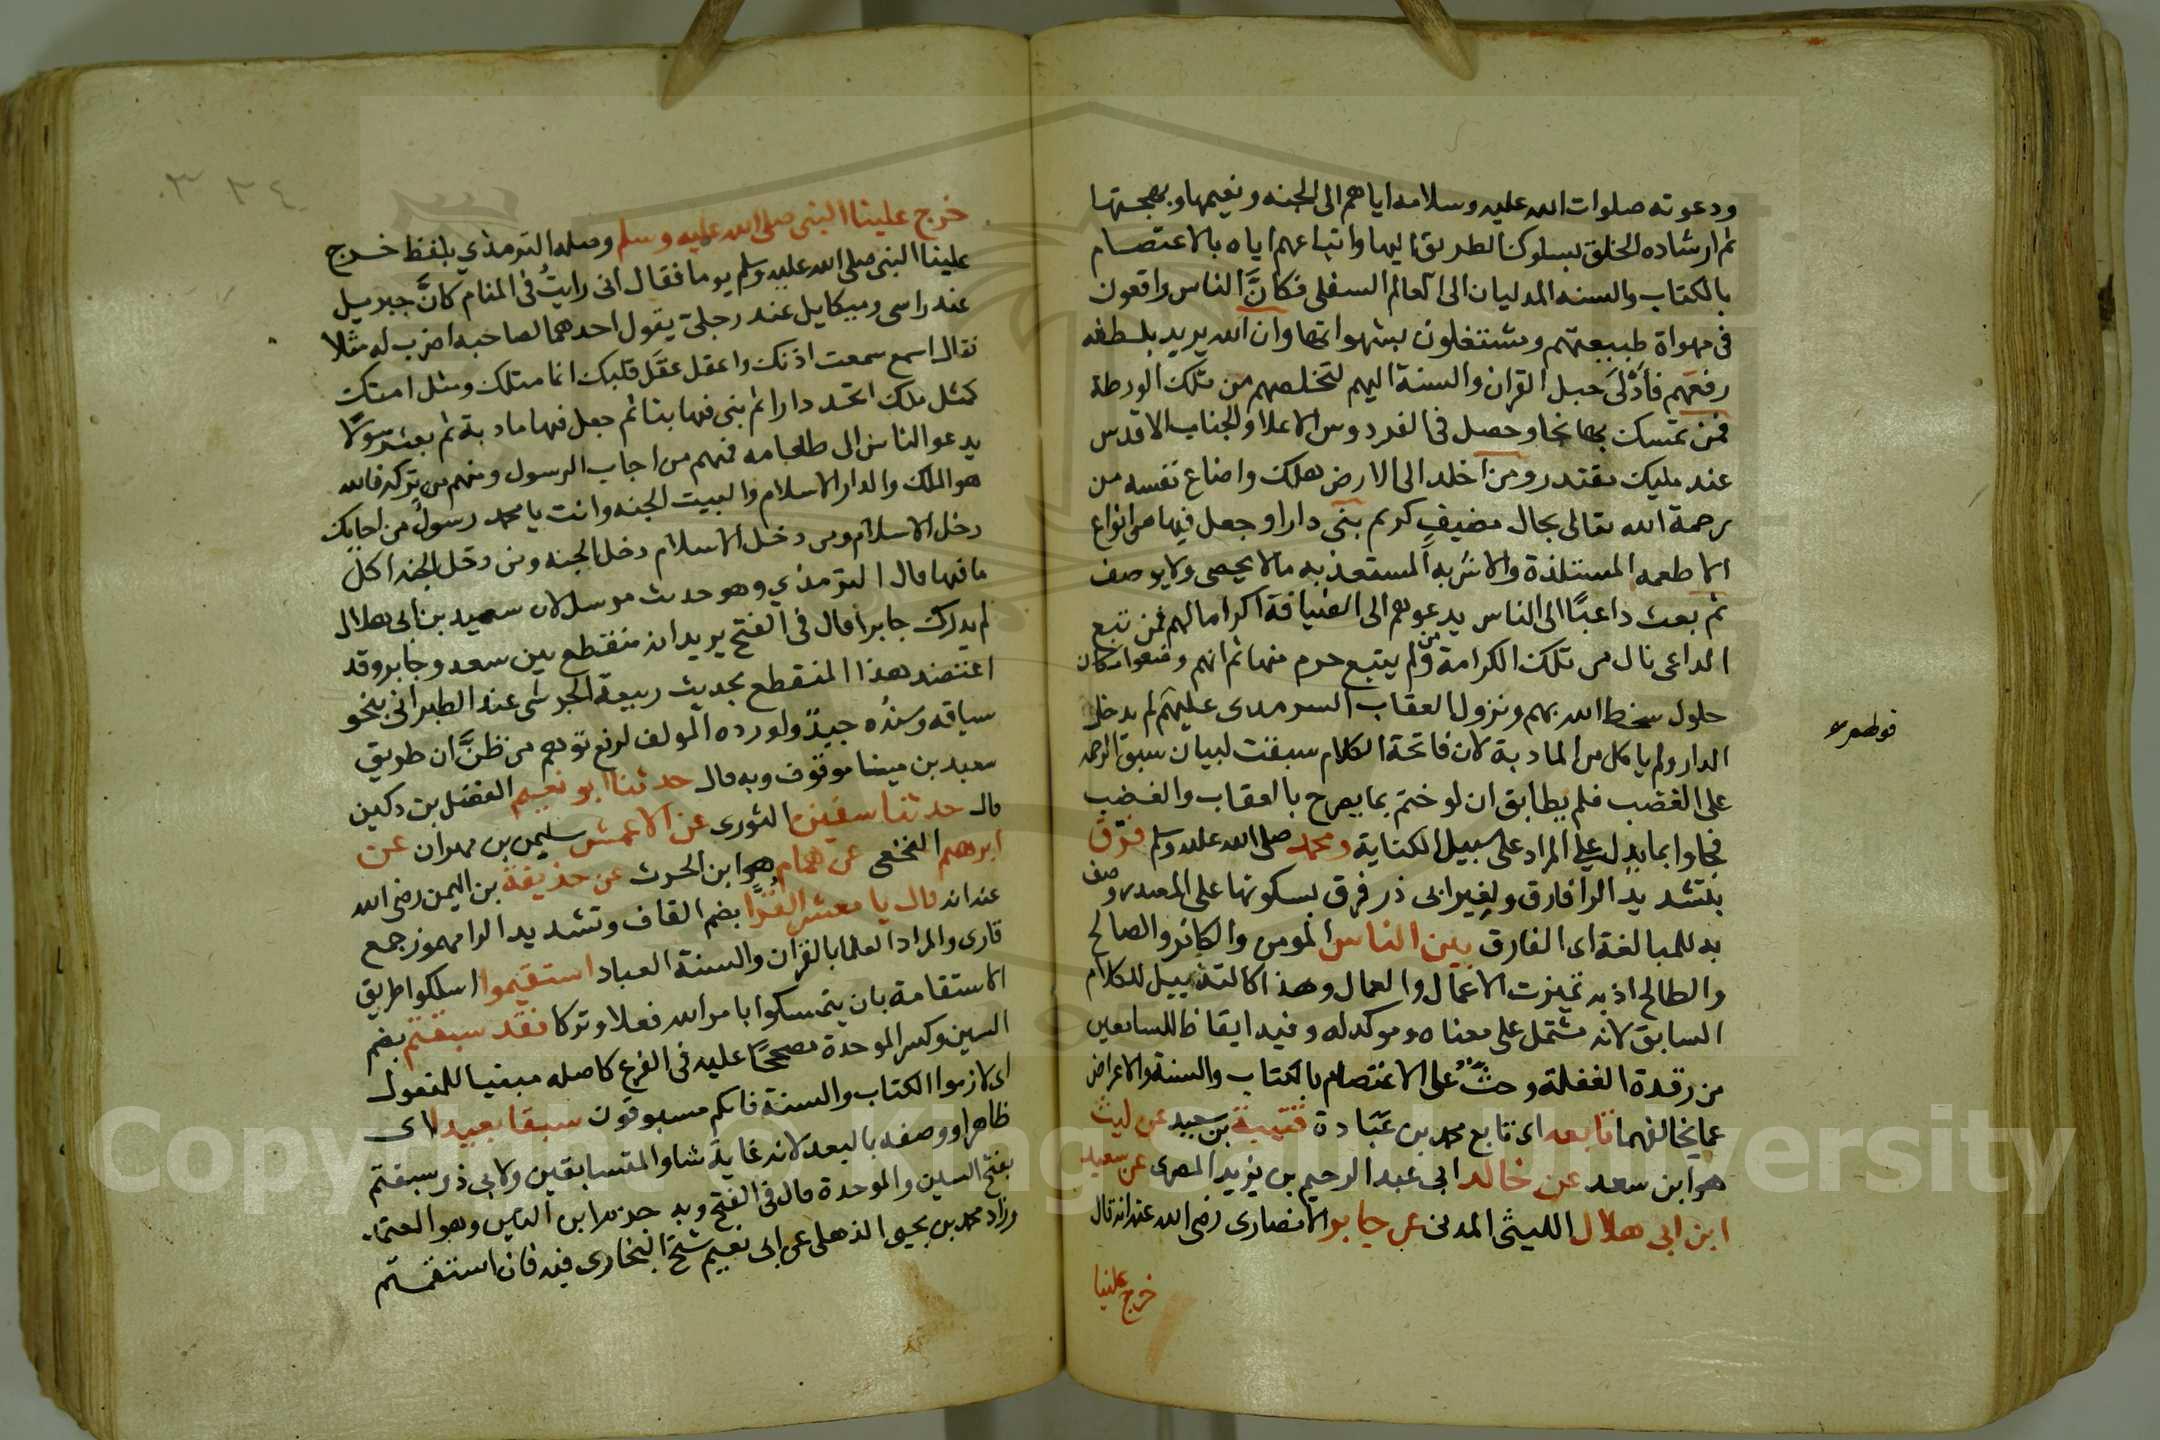 ودعوته صلوات الله عليه وسلامه اياهم الى الجنه ونعيمها وبهجتها
ثم ارشاده الخلق بسلوك الطريق اليها واتباعهم اياه بالاعتصام
بالكتاب والسنه المدليان الى العالم السفلى فكانَّ الناس واقعون
فى مهواة طبيعتهم ومشتغلون بشهواتها وان الله يريد بلطفه
رفعهم فأدْلىَ حبل القران والسنة اليهم لتخلصهم من تلك الورطة
فمن تمسك بهما نجا وحصل فى الفردوس الاعلا والجناب الاقدس
عند مليك مقتدر ومن اخلد الى الارض هلك واضاع نفسه من
رحمة الله تعالى بحال مضيفٍ كريم بنى دارا وجعل فيها من انواع
الاطعمه المستلذة والاشربه المستعذبه مالا يحصى ولا يوصف
ثم بعث داعيًا الى الناس يدعوهم الى الضيافة اكراما لهم فمن تبع
الداعى نال من تلك الكرامة ومن لم يتبع حرم منها ثم انهم وضعوا مكان
حلول سخط الله بهم ونزول العقاب السرمدى عليهم لم يدخل
الدار ولم ياكل من المادبة لان فاتحة الكلام سبقت لبيان سبق الرحمه
على الغضب فلم يطابق ان لو ختم بما يصرح بالعقاب والغضب
فجاوا بما يدل على المراد على سبيل الكناية ومحمد صلى الله عليه وسلم فرّق
بتشديد الرا فارق ولغير ابى ذر فرق بسكونها على المصدر وصف
به للمبالغة اى الفارق بين الناس المومن والكافر والصالح
والطالح اذ به تميزت الاعمال والعمال وهذا كالتذييل للكلام
السابق لانه مشتمل على معناه وموكد له وفيه ايقاظ للسامعين
من رقدة الغفلة وحثٌّ على الاعتصام بالكتاب والسنة والاعراض
عما يخالفهما تابعه اى تابع محمد بن عَبَادة قتيبة بن سعيد عن ليث
هو ابن سعد عن خالد ابى عبد الرحيم بن يزيد المصرى عن سعيد
ابن ابى هلال الليثى المدنى عن جابر الانصارى رضى الله عنه انه قال
خرج علينا
خرج علينا النبى صلى الله عليه وسلم وصله الترمذي بلفظ خرج
علينا النبى صلى الله عليه وسلم يوما فقال انى رايتُ فى المنام كانَّ جبريل
عند راسى وميكايل عند رجلى يقول احدهما لصاحبه اضرب له مثلا
فقال اسمع سمعت اذنك واعقل عقَل قلبك انما مثلك ومثل امتك
كمثل ملك اتخذ دارا ثم بنى فيها بنا ثم جعل فيها مادبة ثم بعث رسولًا
يدعو الناس الى طعامه فمنهم من اجاب الرسول ومنهم من تركه فالله
هو الملك والدار الاسلام والبيت الجنه وانت يا محمد رسولٌ من اجابك
دخل الاسلام ومن دخل الاسلام دخل الجنه ومن دخل الجنه اكل
ما فيها قال الترمذي وهو حديث مرسل لان سعيد بن ابى هلال
لم يدرك جابرا قال فى الفتح يريد انه منقطع بين سعد وجابر وقد
اعتضد هذا المنقطع بحديث ربيعة الجرشى عند الطبرانى بنحو
سياقه وسندُه جيدٌ ولورده المولف لرفع توهم من ظنَّ ان طريق
سعيد بن مينا موقوف وبه قال حدثنا ابو نعيم الفضل بن دكين
قال حدثنا سفين الثورى عن الاعمش سليمن بن مهران عن
ابرهيم النخعى عن همام هو ابن الحرث عن حذيفة بن اليمن رضى الله
عنه انه قال يا معشر القُرَّا بضم القاف وتشديد الرا مهموز جمع
قارى والمراد العلما بالقران والسنة العباد استقيموا اسلكوا طريق
الاستقامة بان يتمسكوا بامر الله فعلا وتركا فقد سبقتم بضم
السين وكسر الموحدة مصححًا عليه فى الفرع كاصله مبنيا للمفعول
اى لازموا الكتاب والسنة فانكم مسبوقون سبقا بعيدا اى
ظاهرا ووصفه بالبعد لانه غاية شاو المتسابقين ولابى ذر سبقتم
بفتح السين والموحدة قال فى الفتح وبه جزم ابن التين وهو المعتمد
وزاد محمد بن يحيى الذهلى عن ابى نعيم شيخ البخارى فيه فان استقمتم
Copyright © King Saud University